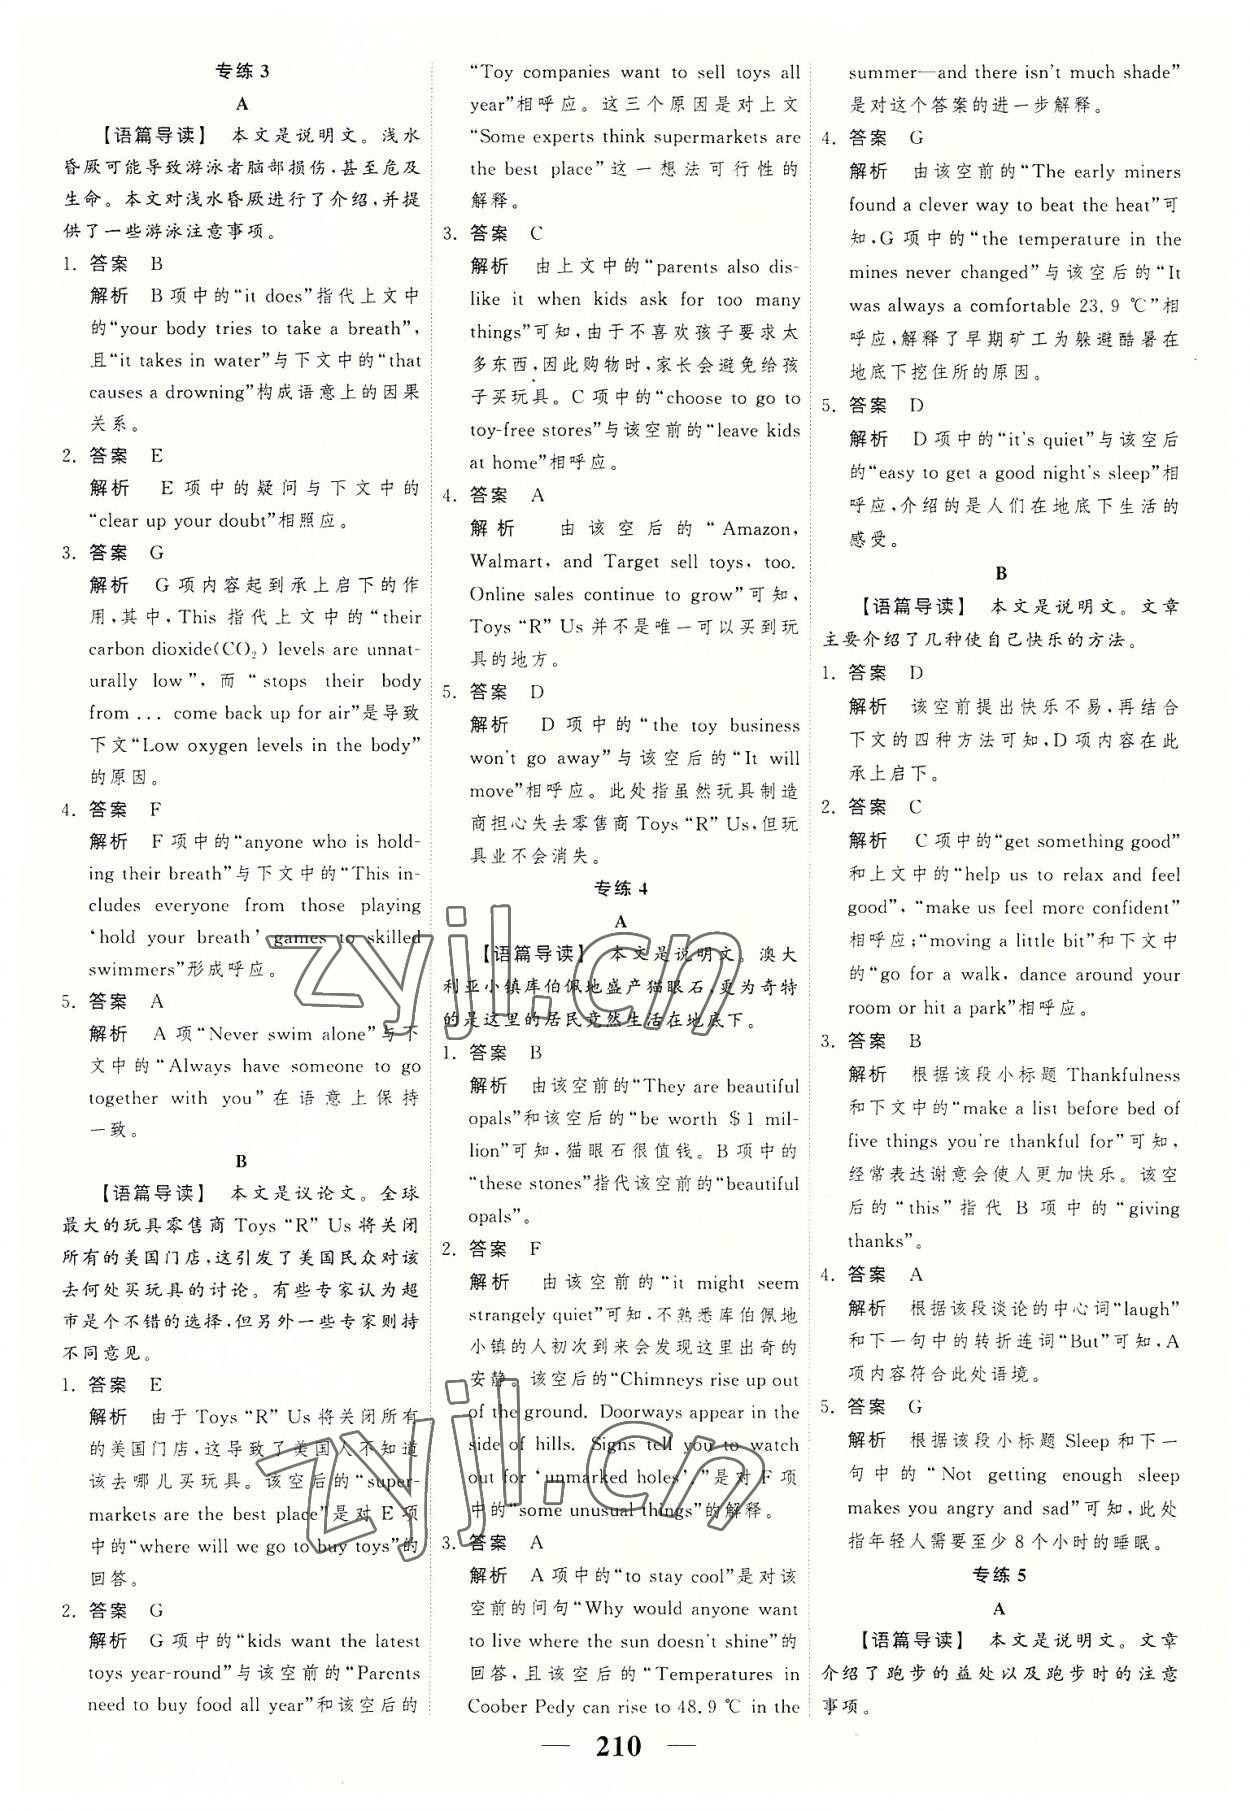 专练 3
A
【语篇导读】 本文是说明文。浅水
昏厥可能导致游泳者脑部损伤,甚至危及
生命。本文对浅水昏厥进行了介绍,并提
供了一些游泳注意事项。
1. 答案 B
解析 B 项中的“it does”指代上文中
的“your body tries to take a breath”,
且“it takes in water”与下文中的“that
causes a drowning”构成语意上的因果
关系。
2. 答案 E
解析 E 项中的疑问与下文中的
“clear up your doubt”相照应。
3. 答案 G
解析 G 项内容起到承上启下的作
用,其中,This 指代上文中的“their
carbon dioxide(CO₂) levels are unnat-
urally low”, 而 “stops their body
from ... come back up for air”是导致
下文“Low oxygen levels in the body”
的原因。
4. 答案 F
解析 F 项中的“anyone who is hold-
ing their breath”与下文中的“This in-
cludes everyone from those playing
‘hold your breath’ games to skilled
swimmers”形成呼应。
5. 答案 A
解析 A 项“Never swim alone”与下
文中的“Always have someone to go
together with you”在语意上保持
一致。
B
【语篇导读】 本文是议论文。全球
最大的玩具零售商 Toys “R” Us 将关闭
所有的美国门店,这引发了美国民众对该
去何处买玩具的讨论。有些专家认为超
市是个不错的选择,但另外一些专家则持
不同意见。
1. 答案 E
解析 由于 Toys “R” Us 将关闭所有
的美国门店,这导致了美国人不知道
该去哪儿买玩具。该空后的“super-
markets are the best place”是对 E 项
中的“where will we go to buy toys”的
回答。
2. 答案 G
解析 G 项中的“kids want the latest
toys year-round”与该空前的“Parents
need to buy food all year”和该空后的
“Toy companies want to sell toys all
year”相呼应。这三个原因是对上文
“Some experts think supermarkets are
the best place”这一想法可行性的
解释。
3. 答案 C
解析 由上文中的“parents also dis-
like it when kids ask for too many
things”可知,由于不喜欢孩子要求太
多东西,因此购物时,家长会避免给孩
子买玩具。C 项中的“choose to go to
toy-free stores”与该空前的“leave kids
at home”相呼应。
4. 答案 A
解析 由该空后的“Amazon,
Walmart, and Target sell toys, too.
Online sales continue to grow”可知,
Toys “R” Us 并不是唯一可以买到玩
具的地方。
5. 答案 D
解析 D 项中的“the toy business
won't go away”与该空后的“It will
move”相呼应。此处指虽然玩具制造
商担心失去零售商 Toys “R” Us,但玩
具业不会消失。
专练 4
A
【语篇导读】 本文是说明文。澳大
利亚小镇库伯佩地盛产猫眼石,更为奇特
的是这里的居民竟然生活在地底下。
1. 答案 B
解析 由该空前的“They are beautiful
opals”和该空后的“be worth $1 mil-
lion”可知,猫眼石很值钱。B 项中的
“these stones”指代该空前的“beautiful
opals”。
2. 答案 F
解析 由该空前的“it might seem
strangely quiet”可知,不熟悉库伯佩地
小镇的人初次到来会发现这里出奇的
安静。该空后的“Chimneys rise up out
of the ground. Doorways appear in the
side of hills. Signs tell you to watch
out for ‘unmarked holes’.”是对 F 项
中的“some unusual things”的解释。
3. 答案 A
解析 A 项中的“to stay cool”是对该
空前的问句“Why would anyone want
to live where the sun doesn't shine”的
回答,且该空后的“Temperatures in
Coober Pedy can rise to 48.9 ℃ in the
summer—and there isn't much shade”
是对这个答案的进一步解释。
4. 答案 G
解析 由该空前的“The early miners
found a clever way to beat the heat”可
知,G 项中的“the temperature in the
mines never changed”与该空后的“It
was always a comfortable 23.9 ℃”相
呼应,解释了早期矿工为躲避酷暑在
地底下挖住所的原因。
5. 答案 D
解析 D 项中的“it's quiet”与该空后
的“easy to get a good night's sleep”相
呼应,介绍的是人们在地底下生活的
感受。
B
【语篇导读】 本文是说明文。文章
主要介绍了几种使自己快乐的方法。
1. 答案 D
解析 该空前提出快乐不易,再结合
下文的四种方法可知,D 项内容在此
承上启下。
2. 答案 C
解析 C 项中的“get something good”
和上文中的“help us to relax and feel
good”,“make us feel more confident”
相呼应;“moving a little bit”和下文中
的“go for a walk, dance around your
room or hit a park”相呼应。
3. 答案 B
解析 根据该段小标题 Thankfulness
和下文中的“make a list before bed of
five things you're thankful for”可知,
经常表达谢意会使人更加快乐。该空
后的“this”指代 B 项中的“giving
thanks”。
4. 答案 A
解析 根据该段谈论的中心词“laugh”
和下一句中的转折连词“But”可知,A
项内容符合此处语境。
5. 答案 G
解析 根据该段小标题 Sleep 和下一
句中的“Not getting enough sleep
makes you angry and sad”可知,此处
指年轻人需要至少 8 个小时的睡眠。
专练 5
A
【语篇导读】 本文是说明文。文章
介绍了跑步的益处以及跑步时的注意
事项。
zyjl.cn
zyjl.cn
— 210 —